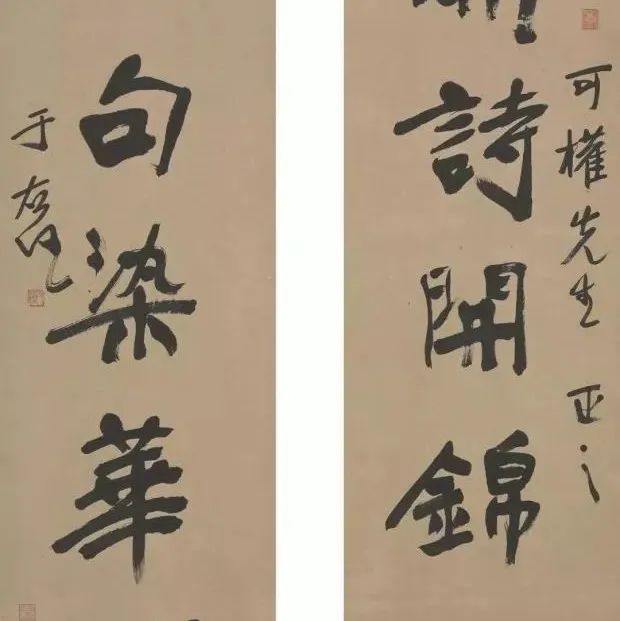 可權先生 正之
詩開錦
句染華
于右任